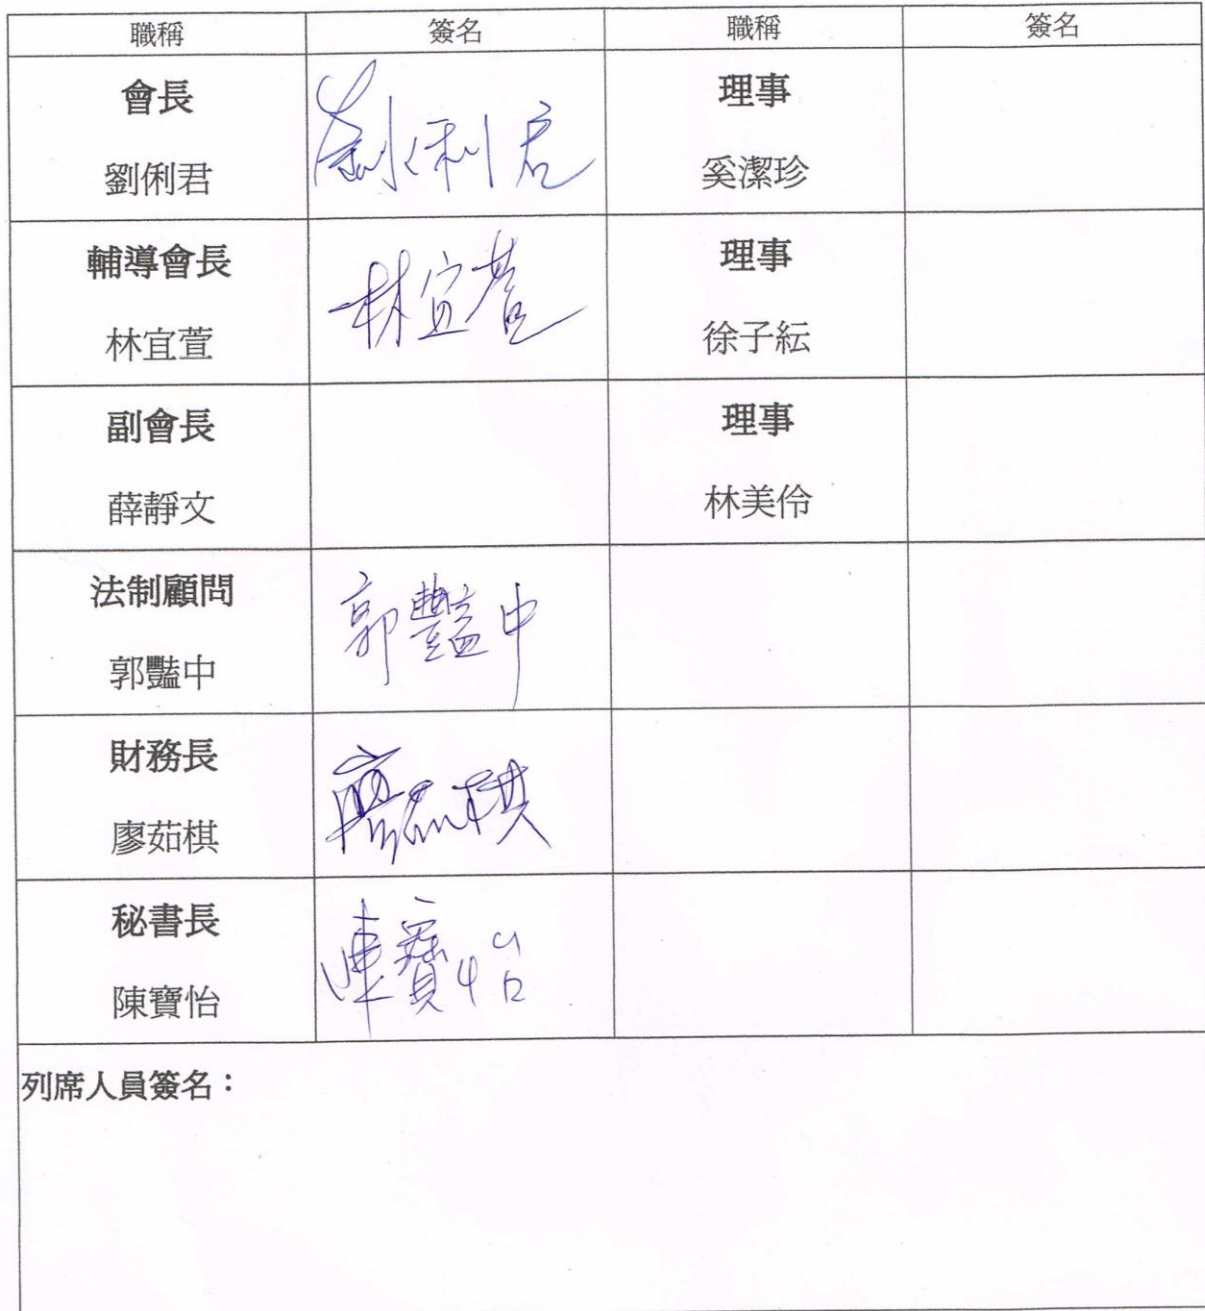 職稱 簽名 職稱 簽名
會長 劉俐君 理事
劉俐君 奚潔珍
輔導會長 林宜萱 理事
林宜萱 徐子紜
副會長 理事
薛靜文 林美伶
法制顧問 郭豔中
郭豔中
財務長 廖茹棋
廖茹棋
秘書長 陳寶怡
陳寶怡
列席人員簽名：